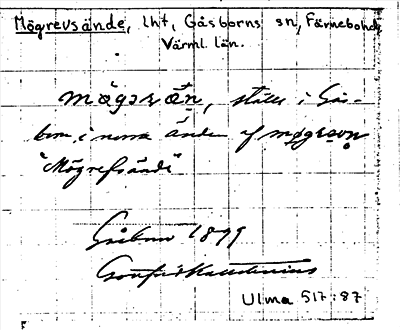 Mögrevsände, lht, Gåsborns sn, Färnebo hd,
Värml. län.
mögərän, ställe i Gås-
born, i norra änden af møgrəvn
"Mögrefsände"
Gåsborn 1899
Gottfrid Kallstenius
Ulma 517:87